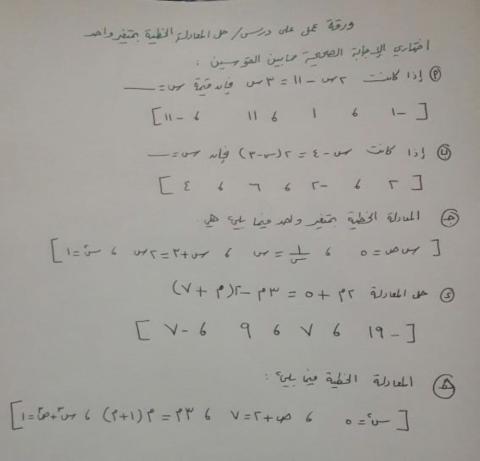 ورقة عمل على درس / حل المعادلة الخطية بمتغير واحد
اختاري الإجابة الصحيحة مما بين القوسين :
أ) إذا كانت ٢س - ١١ = ٣س فإن قيمة س = ــــ
[ -١ ، ١ ، ١١ ، -١١ ]
ب) إذا كانت س - ٤ = ٢(س-٣) فإن س = ــــ
[ ٢ ، -٢ ، ٦ ، ٤ ]
ج) المعادلة الخطية بمتغير واحد فيما يلي هي
[ س ص = ٥ ، ١/س = س ، س + ٣ = ٢س ، س² = ١ ]
د) حل المعادلة ٢م + ٥ = ٣م - ٢(م + ٧)
[ -١٩ ، ٧ ، ٩ ، -٧ ]
هـ) المعادلة الخطية فيما يلي :
[ س² = ٥ ، ص + ٢ = ٧ ، ٣م = م(م+١) ، س² + ص² = ١ ]